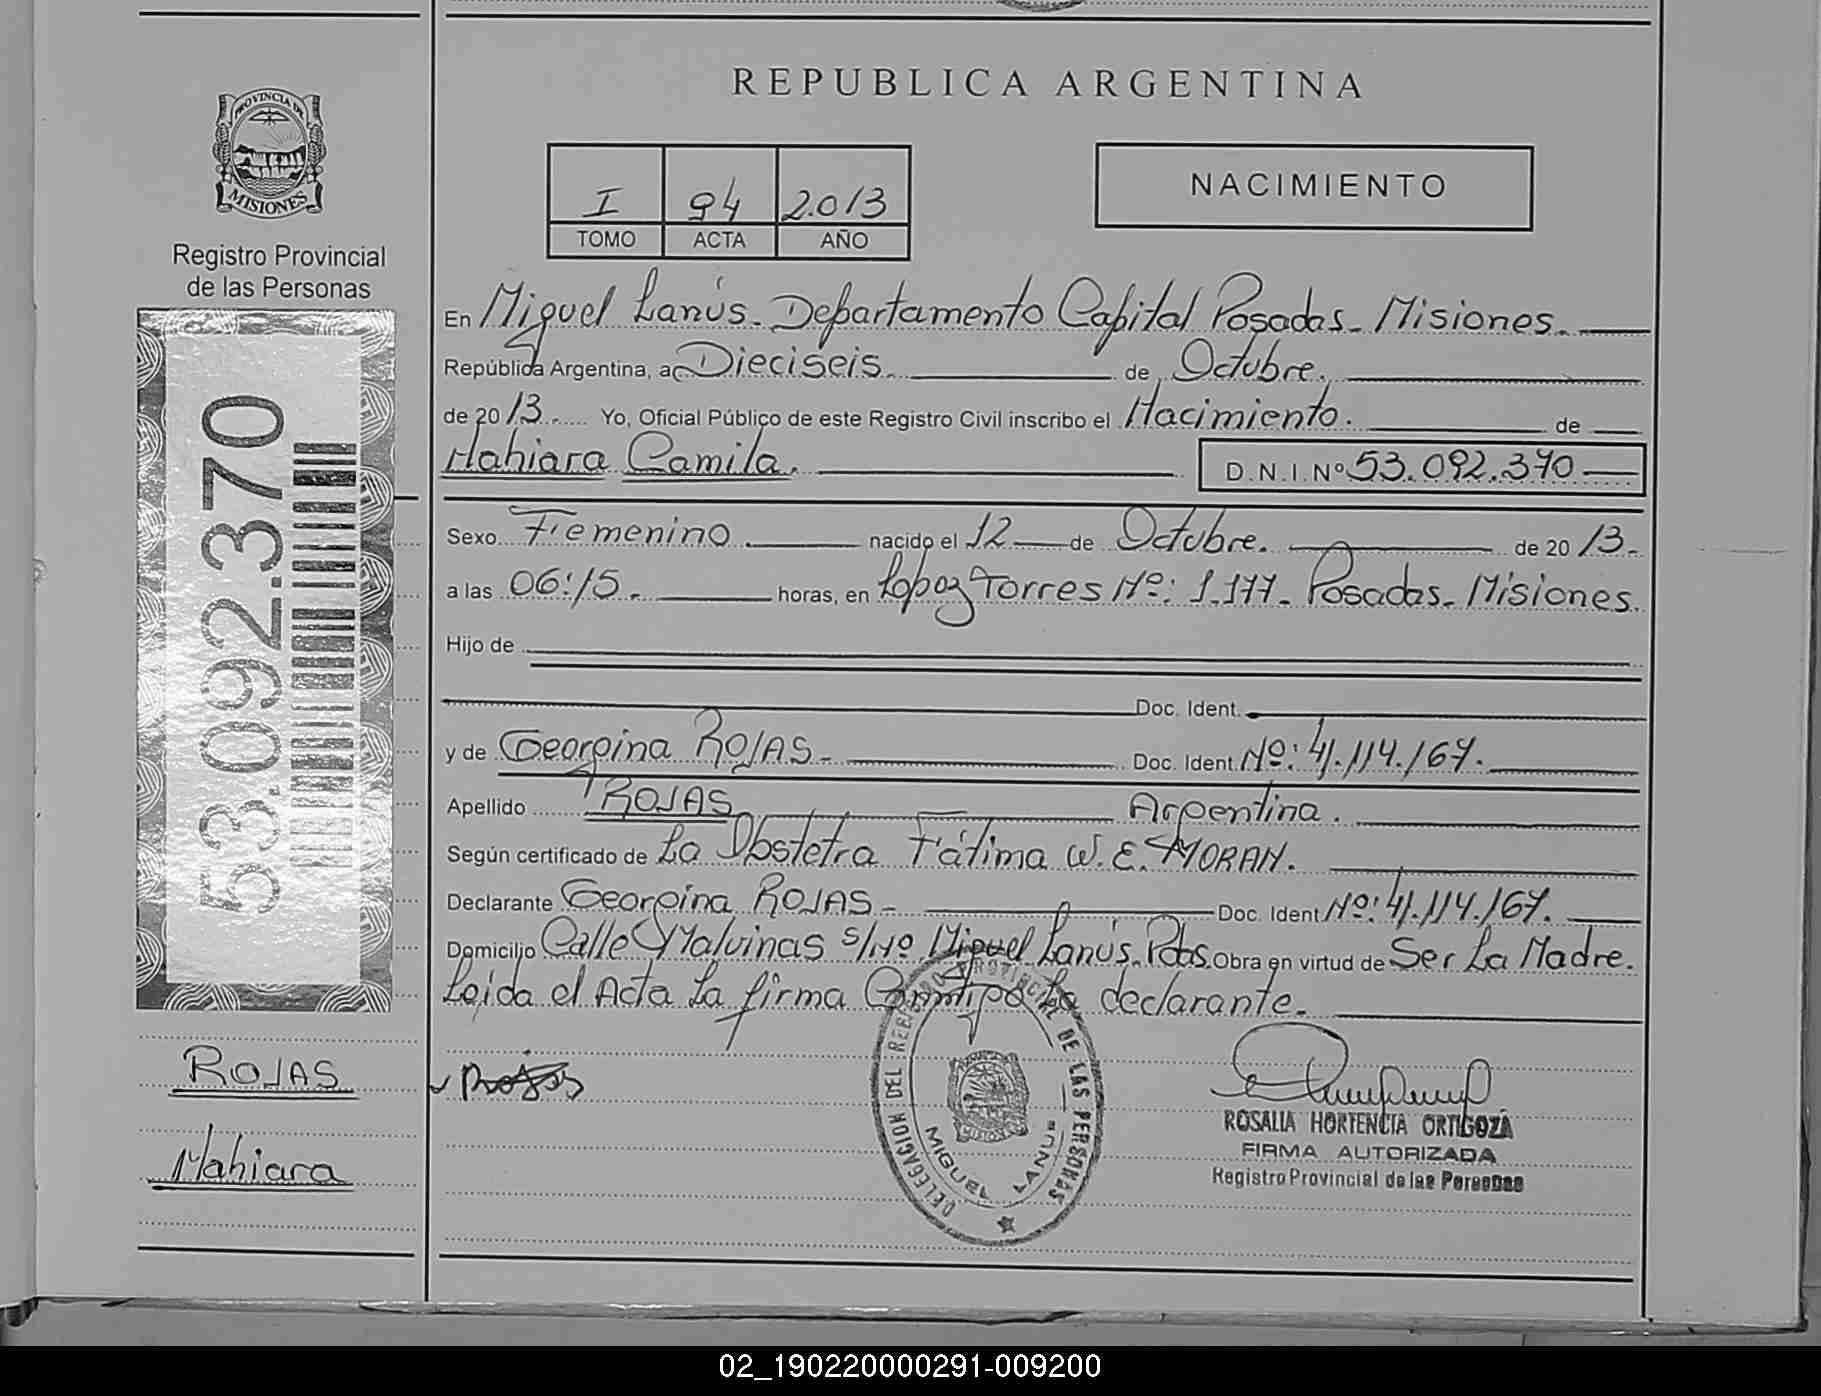 REPUBLICA ARGENTINA
PROVINCIA DE
MISIONES
Registro Provincial
de las Personas
I 94 2.013
TOMO ACTA AÑO
NACIMIENTO
53.092.370
En Miguel Lanús. Departamento Capital Posadas. Misiones.
República Argentina, a Dieciseis. de Octubre.
de 2013. Yo, Oficial Público de este Registro Civil inscribo el Nacimiento. de
Nahiara Camila. D.N.I. Nº 53.092.370
Sexo Femenino nacido el 12 de Octubre. de 2013.
a las 06:15. horas, en Lopez Torres Nº: 1.177. Posadas. Misiones.
Hijo de
Doc. Ident.
y de Georgina ROJAS. Doc. Ident. Nº: 41.114.167.
Apellido ROJAS Argentina.
Según certificado de La Obstetra Fátima W. E. MORAN.
Declarante Georgina ROJAS. Doc. Ident. Nº: 41.114.167.
Domicilio Calle Malvinas s/Nº Miguel Lanús. Pdas. Obra en virtud de Ser La Madre.
Leida el Acta La firma La declarante.
ROJAS
Nahiara
Rojas
DELEGACION DEL REGISTRO PROVINCIAL DE LAS PERSONAS
MISIONES
MIGUEL LANUS
ROSALIA HORTENCIA ORTIGOZA
FIRMA AUTORIZADA
Registro Provincial de las Personas
02_190220000291-009200